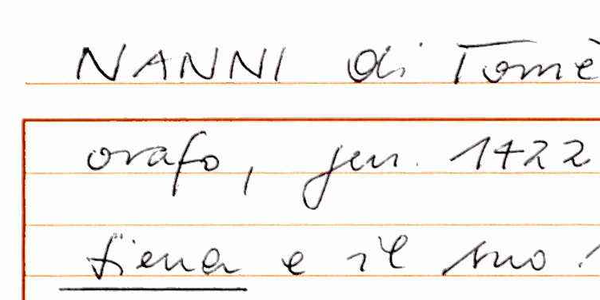 NANNI di Tomè
orafo, jen. 1422
Siena e il suo